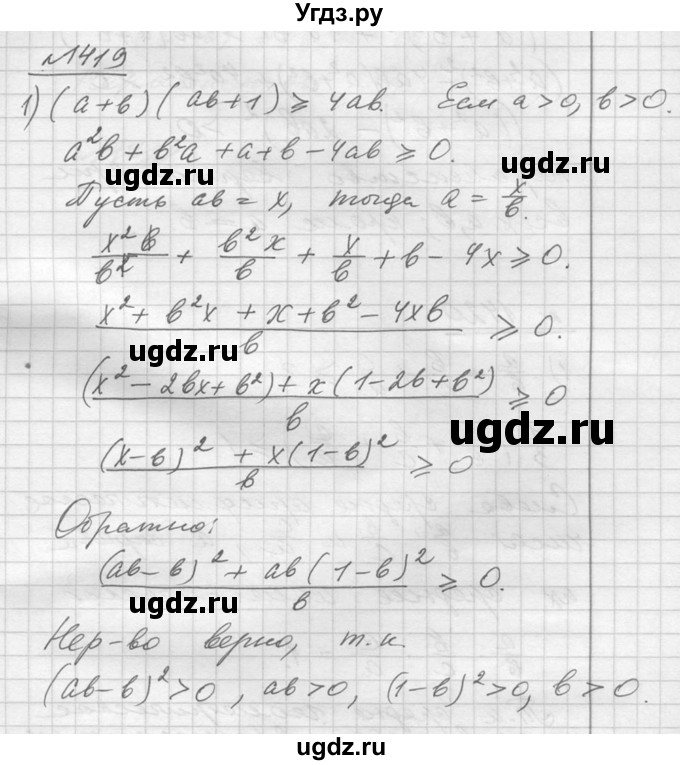 Угдз.ру
№419
1) (a+b)(ab+1) ⩾ 4ab. Если a>0, b>0.
a²b + b²a + a+b - 4ab ⩾ 0.
ugdz.ru
Пусть ab = x, тогда a = x/b.
x²b/b² + b²x/b + x/b + b - 4x ⩾ 0.
ugdz.ru
(x² + b²x + x + b² - 4xb)/b ⩾ 0.
ugdz.ru
((x² - 2bx + b²) + x(1 - 2b + b²))/b ⩾ 0
ugdz.ru
((x-b)² + x(1-b)²)/b ⩾ 0
ugdz.ru
Обратно:
((ab-b)² + ab(1-b)²)/b ⩾ 0.
ugdz.ru
Нер-во верно, т.к.
(ab-b)²>0, ab>0, (1-b)²>0, b>0.
ugdz.ru
ugdz.ru